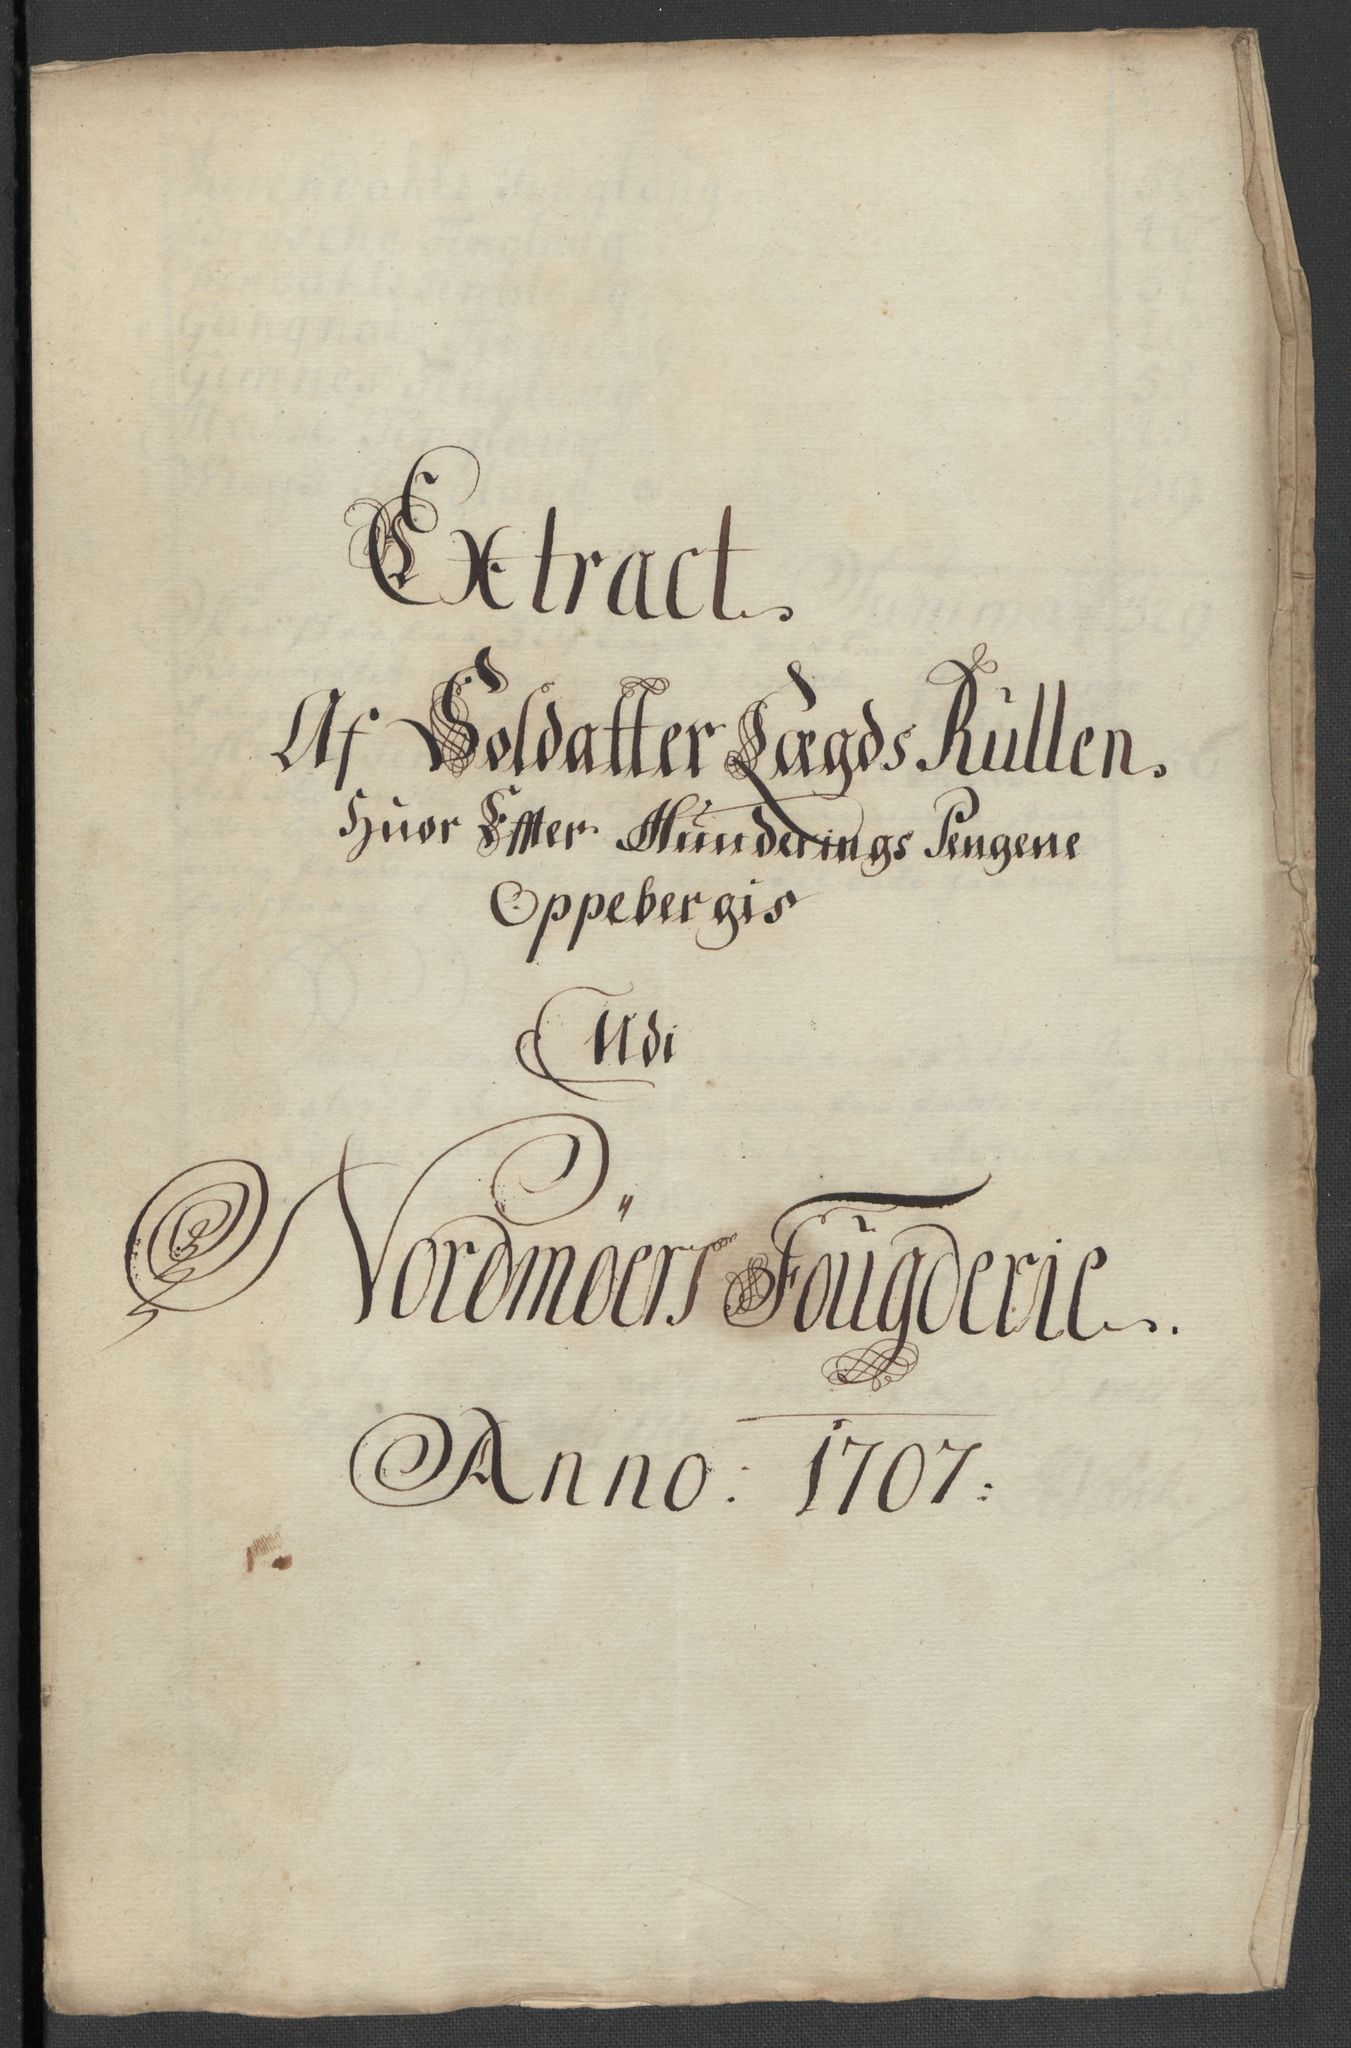 Extract.
Af Soldatter Lægds Rullen.
Huor Effter Munderings Pengene
Oppebergis
Udi
Nordmöers Fougderie.
Anno: 1707: